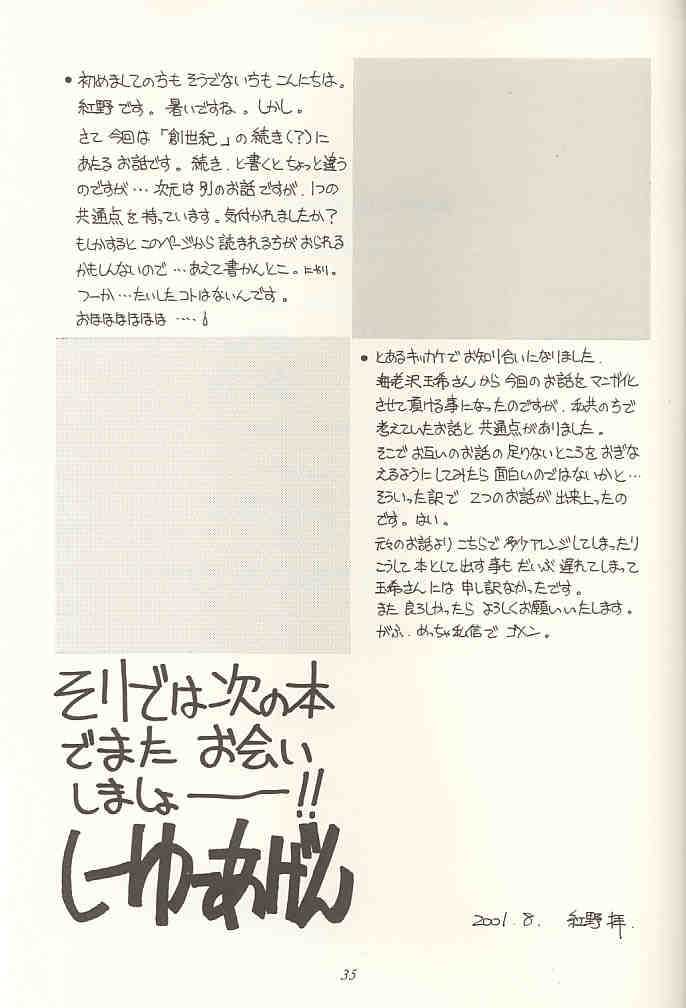 • 初めましての方も そうでない方も こんにちは。
紅野です。暑いですね。しかし。
さて 今回は「創世紀」の続き(?)に
あたるお話です。続き、と書くとちょっと違う
のですが… 次元は別のお話ですが、1つの
共通点を持っています。気付かれましたか?
もしかすると このページから読まれる方がおられる
かもしんないので …あえて書かんとこ。にやり。
つーか…たいしたコトはないんです。
おほほほほほほ ‥‥!
• とあるキッカケで お知り合いになりました、
海老沢玉希さんから 今回のお話を マンガ化
させて頂ける事になったのですが、私共の方で
考えていたお話と 共通点がありました。
そこで お互いのお話の 足りないところを おぎな
えるように してみたら 面白いのではないかと…
そういった訳で 2つのお話が 出来上ったの
です。はい。
元々のお話より こちらで 多々アレンジしてしまったり
こうして 本として出す事も だいぶ 遅れてしまって
玉希さんには 申し訳なかったです。
また 良ろしかったら よろしくお願いいたします。
がふ、めっちゃ私信で ゴメン。
そりでは次の本
でまた お会い
しましょ——!!
しーゆーあげん
2001.8. 紅野 拝.
35